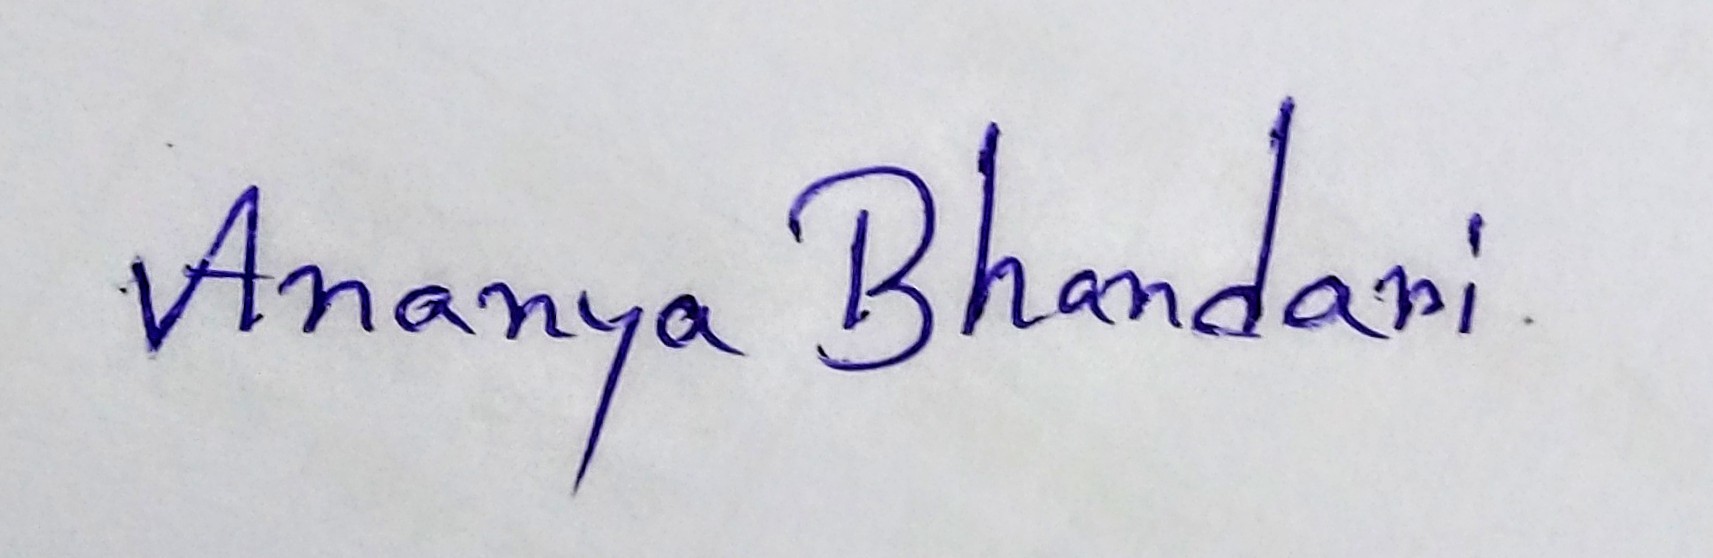 Ananya Bhandari.